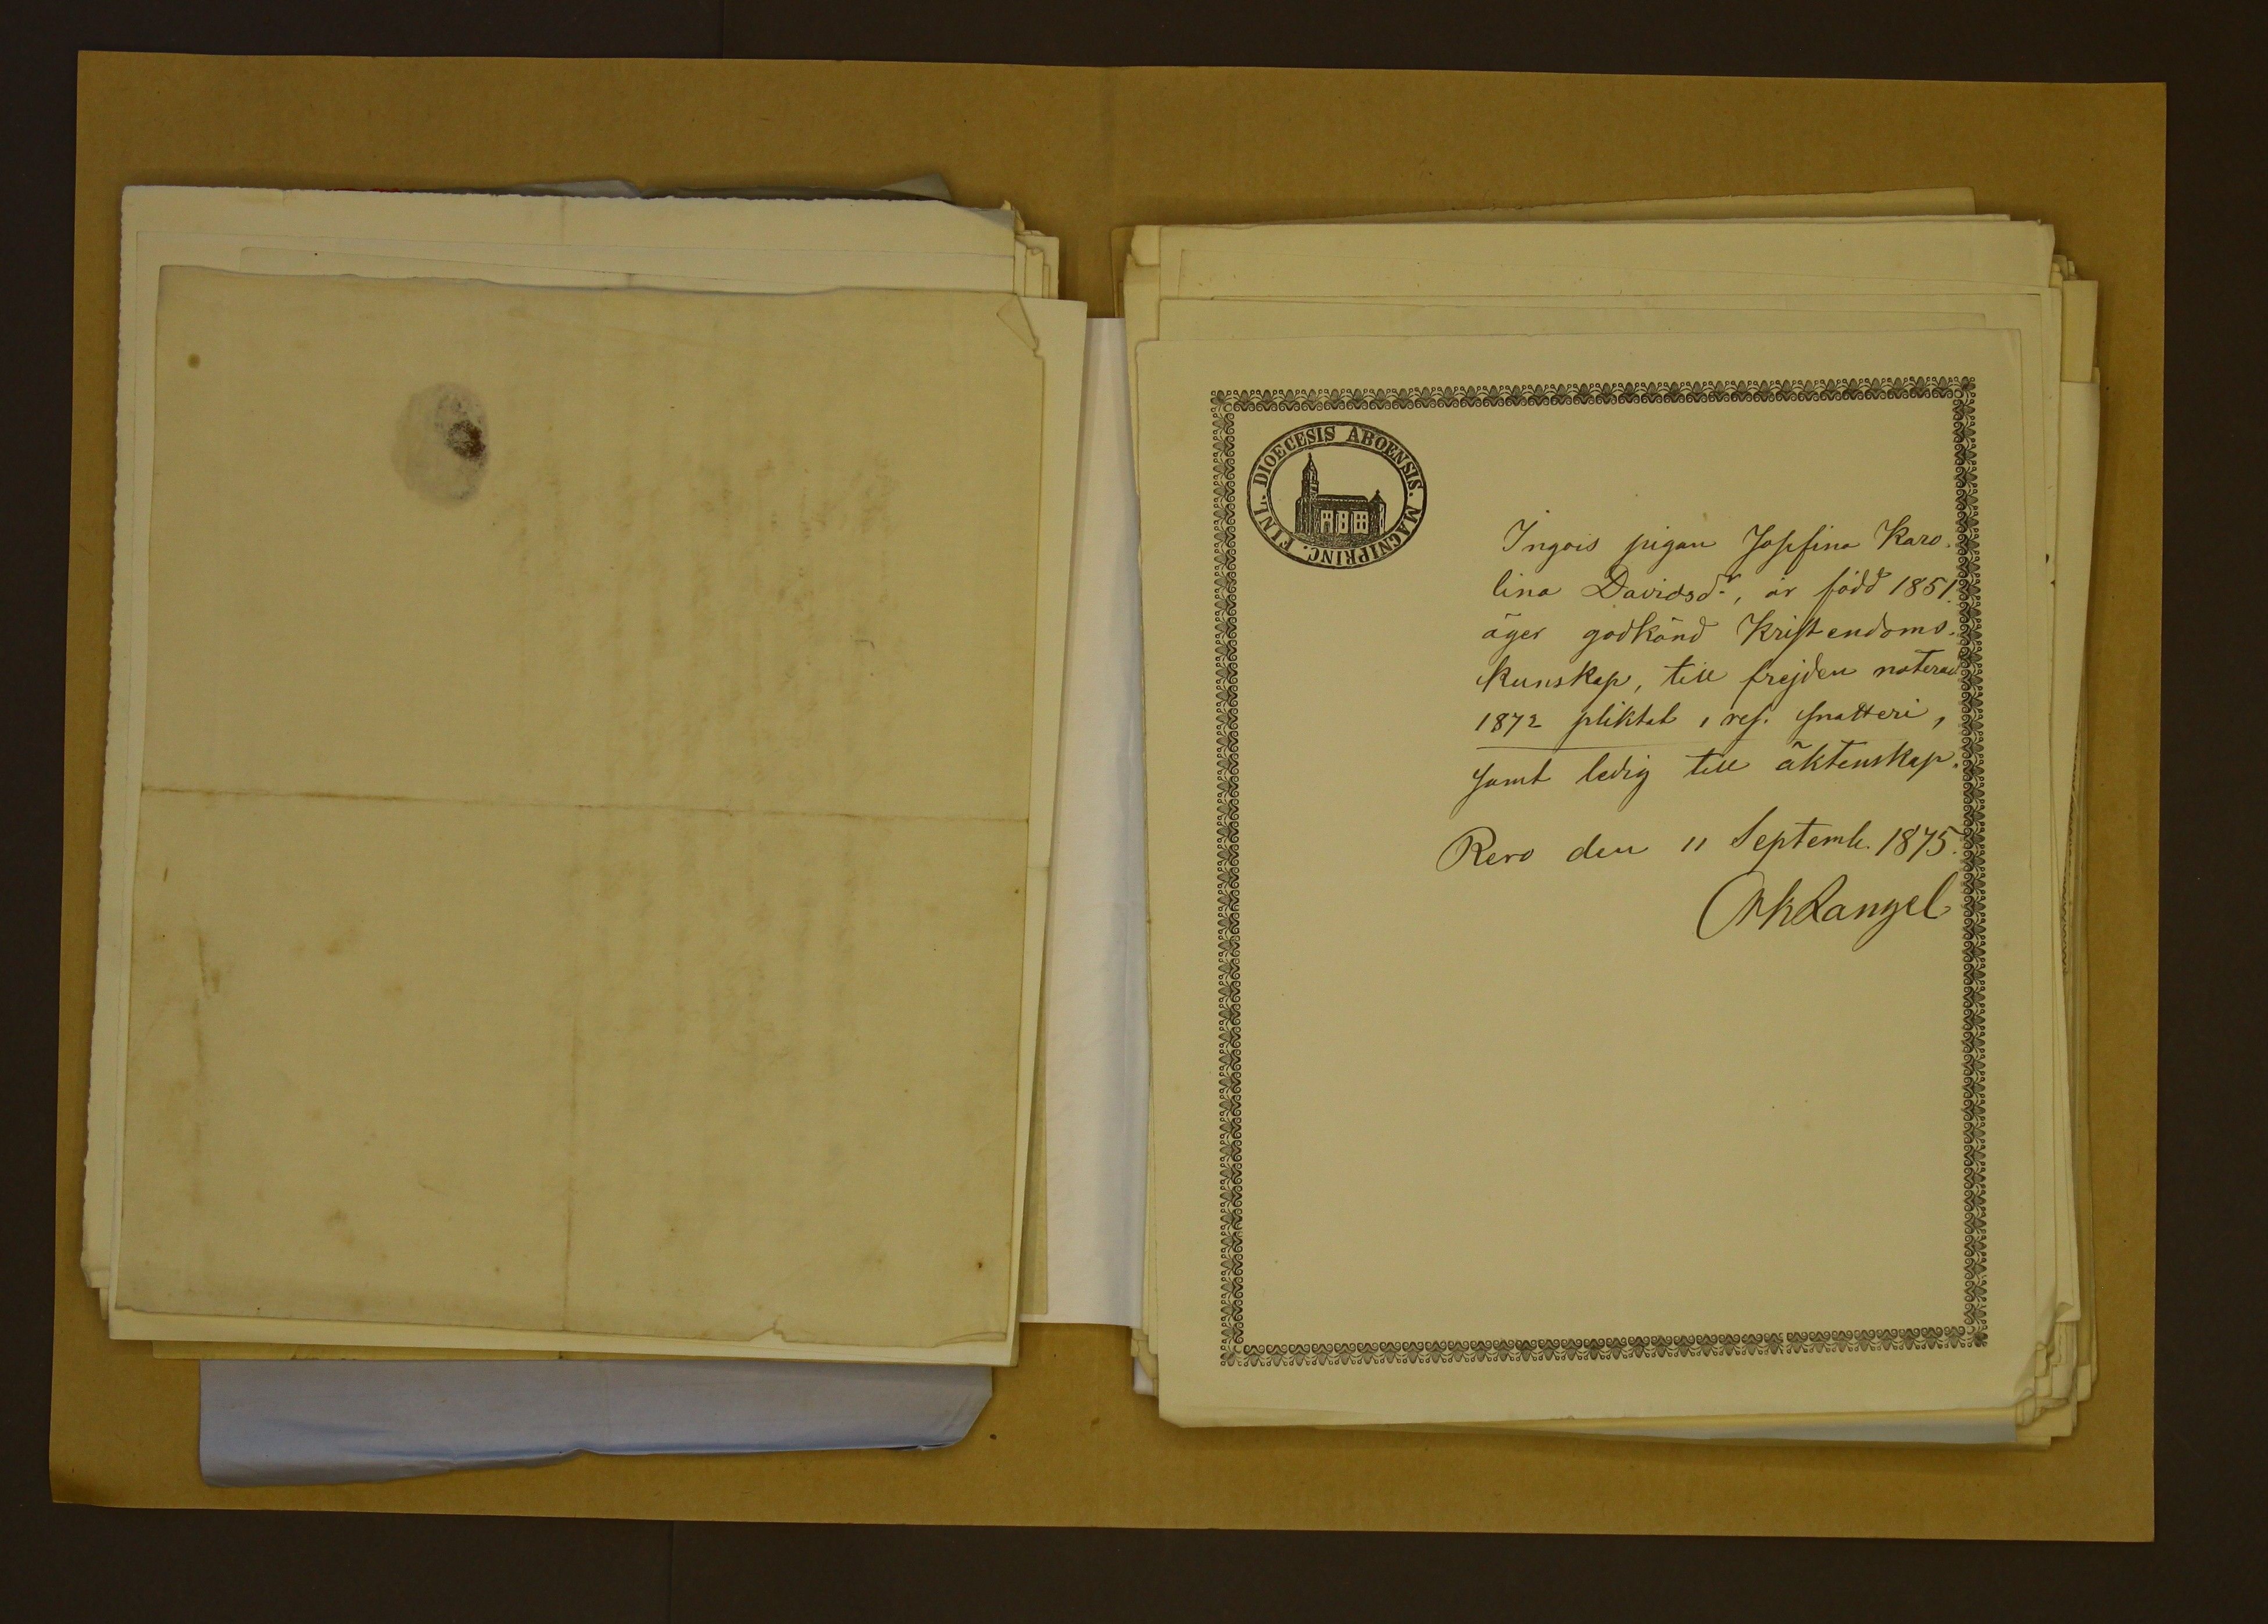 DIOECESIS ABOENSIS. MAGNIPRINC. FINL.
Ingois pigan Josefina Karo-
lina Davidsdr, är född 1851.
äger godkänd Kristendoms-
kunskap, till frejden noterad
1872 pliktat 1 res. snatteri,
samt ledig till äktenskap.
Revo den 11 Septemb. 1875.
Langel